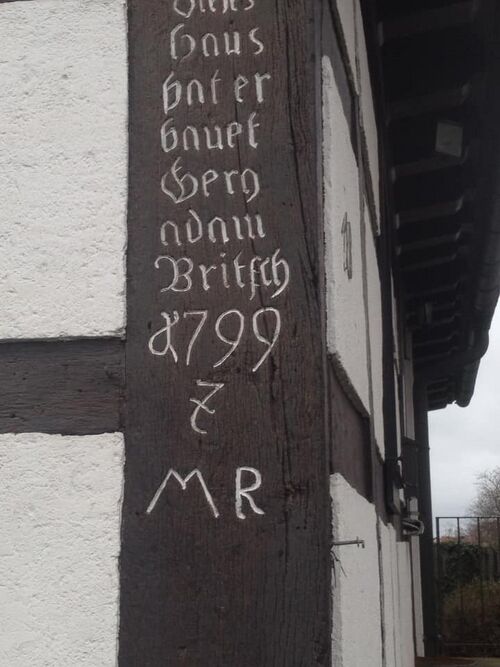 Dieses
Haus
hat er
bauet
Gerg
adam
Britsch
1799
Z
M R